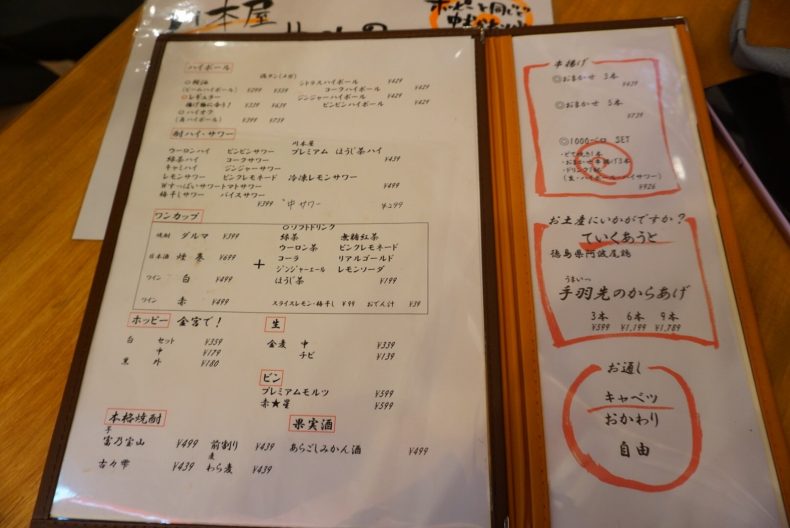 本屋
ホッピーと同じっ
ハイボール
シトラスハイボール ¥429
コーラハイボール ¥429
ジンジャーハイボール ¥429
ビンビンハイボール ¥429
(ビームハイボール) ¥299 ¥559
◎レギュラー
揚げ物に合う! ¥339 ¥639
◎ハイオク
¥399 ¥739
酎ハイ・サワー
川本屋
ウーロンハイ ビンビンサワー プレミアム ほうじ茶ハイ
緑茶ハイ コークサワー ¥439
キャミハイ ジンジャーサワー
レモンサワー ピンクレモネード 冷凍レモンサワー
Wすっぱいサワー トマトサワー ¥499
梅干しサワー バイスサワー
¥399 中サワー ¥299
ワンカップ
焼酎 ダルマ ¥399
日本酒 燗番 ¥699
ワイン 白 ¥499
ワイン 赤 ¥499
+
◎ソフトドリンク
緑茶 無糖紅茶
ウーロン茶 ピンクレモネード
コーラ リアルゴールド
ジンジャーエール レモンソーダ
ほうじ茶 ¥199
スライスレモン・梅干し ¥99 おでん汁 ¥39
ホッピー 金宮で!
白 セット ¥359
中 ¥179
黒 外 ¥180
生
金麦 中 ¥339
チビ ¥139
ビン
プレミアムモルツ ¥599
赤★星 ¥599
本格焼酎
芋
富乃宝山 ¥499 前割り ¥439
麦
吉々雫 ¥439 わら麦 ¥439
果実酒
あらごしみかん酒 ¥499
串揚げ
◎おまかせ 3本
¥439
◎おまかせ 5本
¥739
◎1000ベロ SET
・どて焼き1本
・おまかせ串揚げ3本
・ドリンク1杯
(生・ハイボール・ハイサワー)
¥926
お土産にいかがですか?
ていくあうと
徳島県阿波尾鶏
うまいっ
手羽先のからあげ
3本 6本 9本
¥599 ¥1,199 ¥1,789
お通し
キャベツ
おかわり
自由